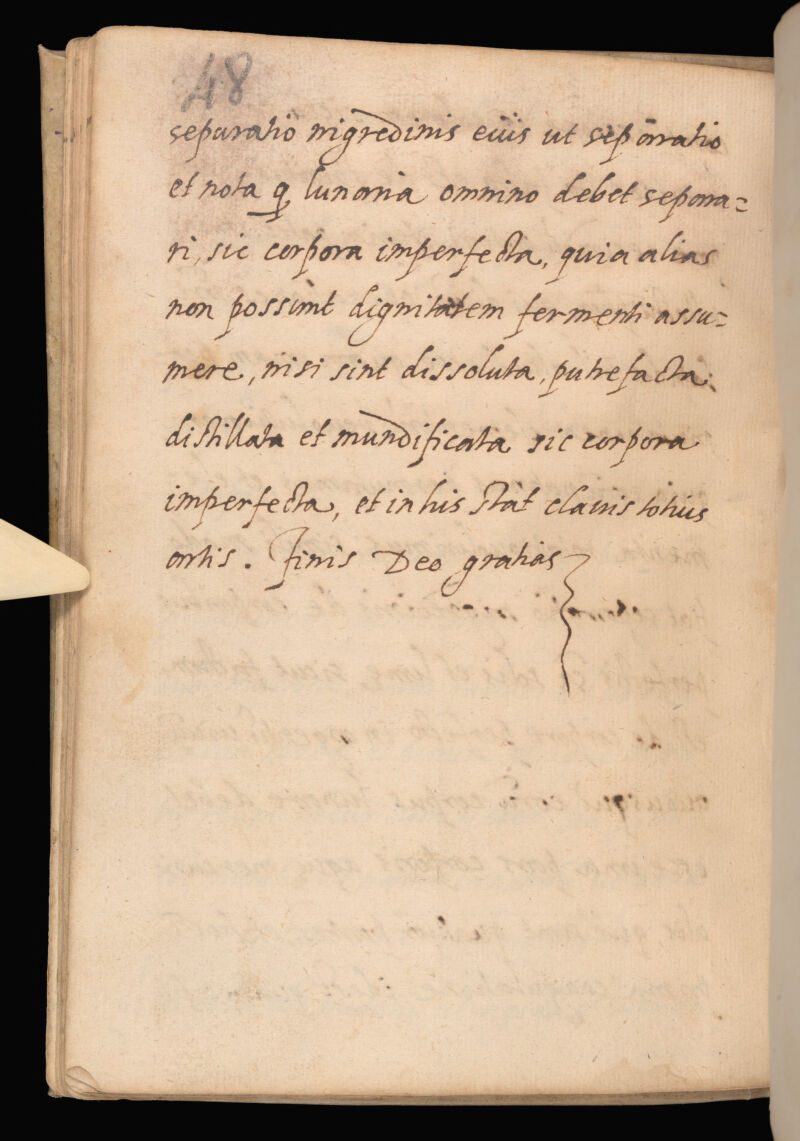 48
separatio nigredinis eius ut sepāratio
et nota ꝙ lunaria omnino debet separa=
ri, sic corpora imperfecta, quia alias
non possunt dignitatem fermenti assu=
mere, nisi sint dissoluta, putrefacta,
distillata et mundificata sic corpora
imperfecta, et in his stat clavis totius
artis. Finis Deo gratias